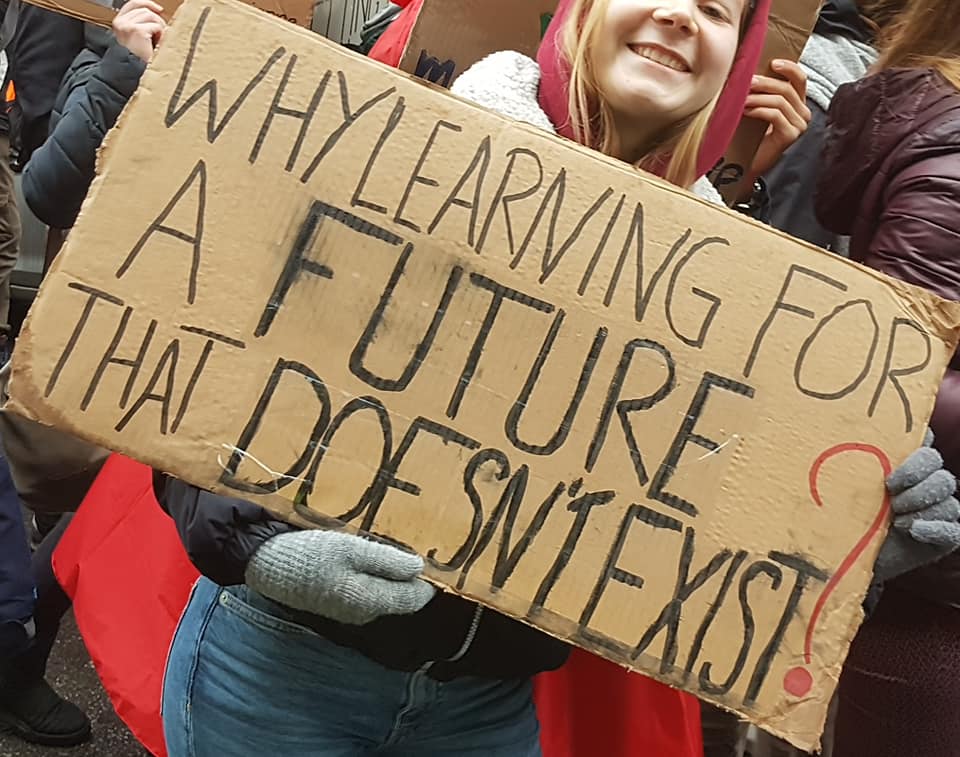 WHY LEARNING FOR
A FUTURE
THAT DOESN'T EXIST?